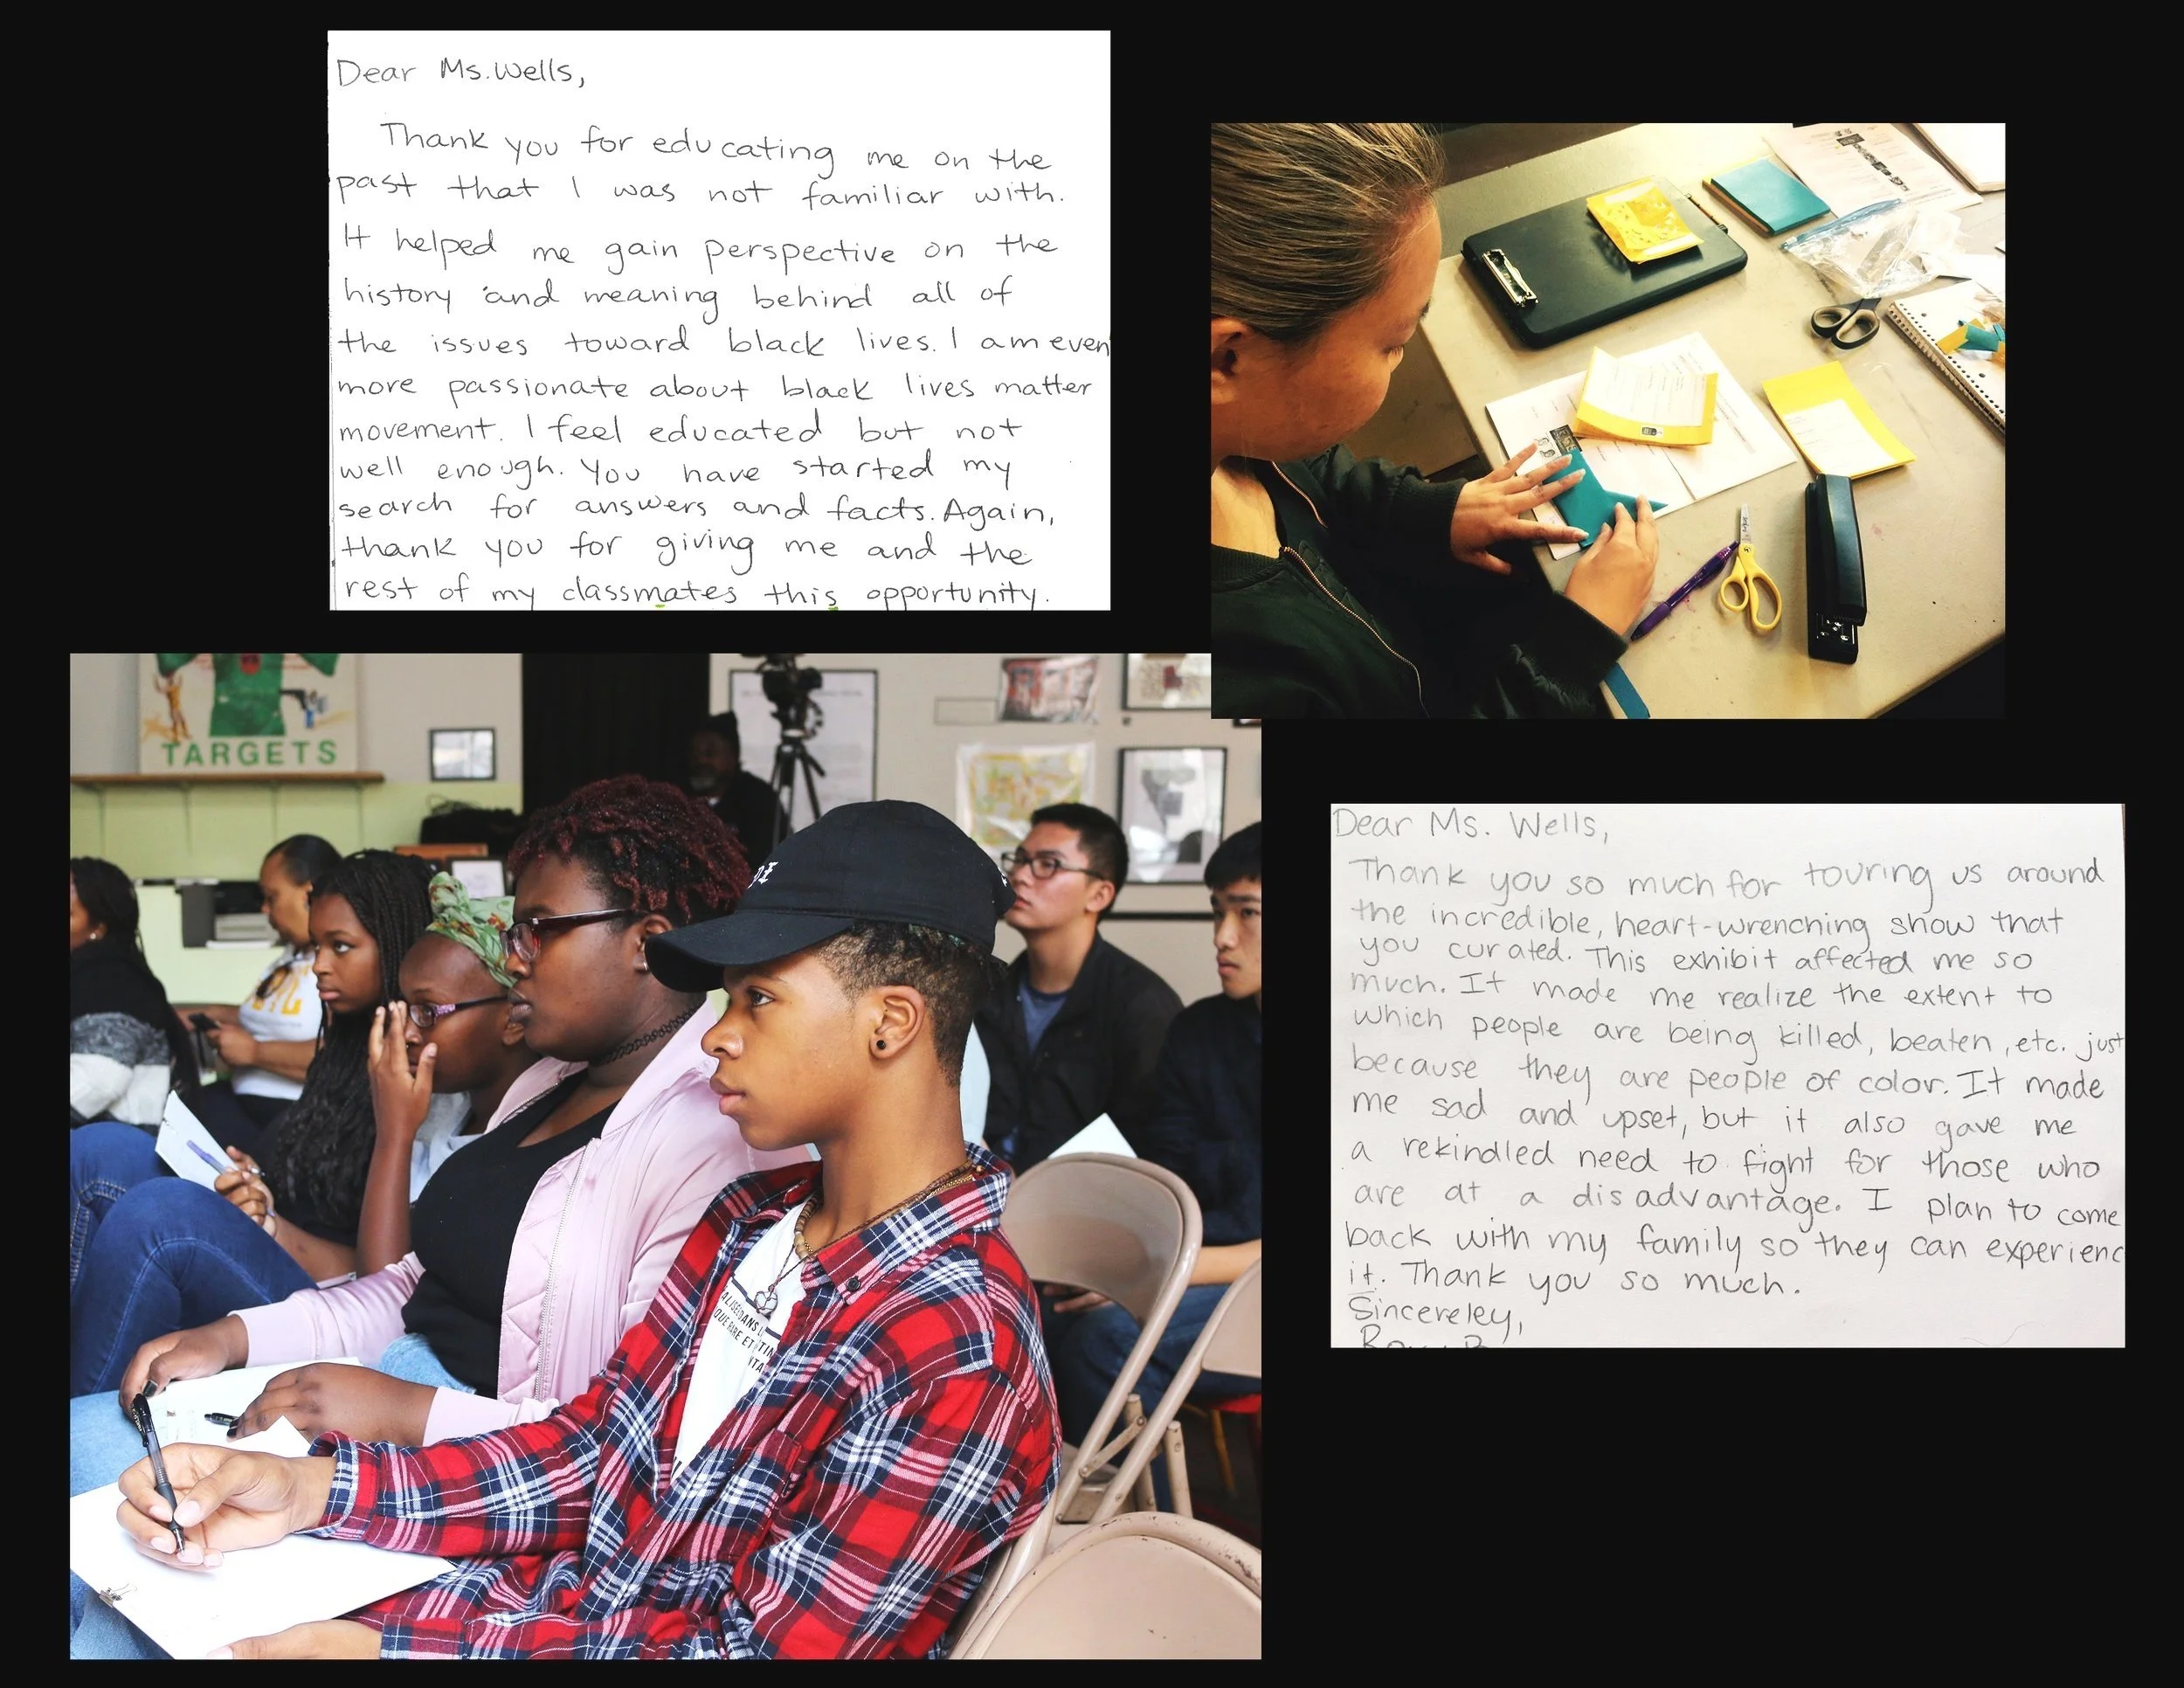 Dear Ms. Wells,
Thank you for educating me on the
past that I was not familiar with.
It helped me gain perspective on the
history and meaning behind all of
the issues toward black lives. I am even
more passionate about black lives matter
movement. I feel educated but not
well enough. You have started my
search for answers and facts. Again,
thank you for giving me and the
rest of my classmates this opportunity.
TARGETS
Dear Ms. Wells,
Thank you so much for touring us around
the incredible, heart-wrenching show that
you curated. This exhibit affected me so
much. It made me realize the extent to
which people are being killed, beaten, etc. just
because they are people of color. It made
me sad and upset, but it also gave me
a rekindled need to fight for those who
are at a disadvantage. I plan to come
back with my family so they can experienc
it. Thank you so much.
Sincereley,